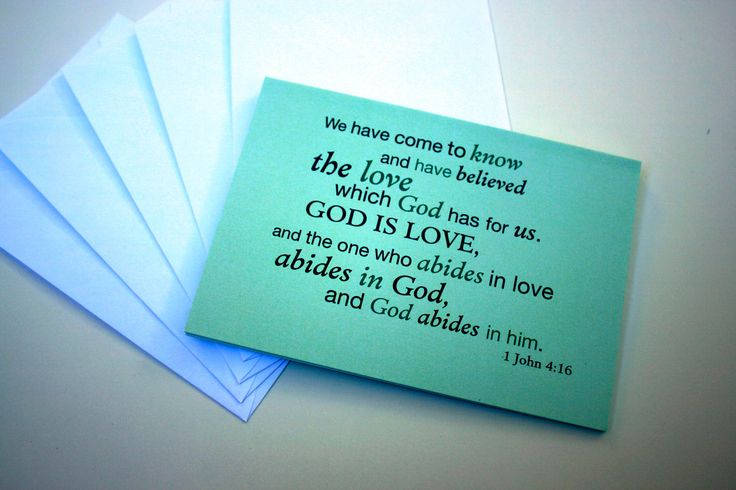 We have come to know
and have believed
the love
which God has for us.
GOD IS LOVE,
and the one who abides in love
abides in God,
and God abides in him.
1 John 4:16